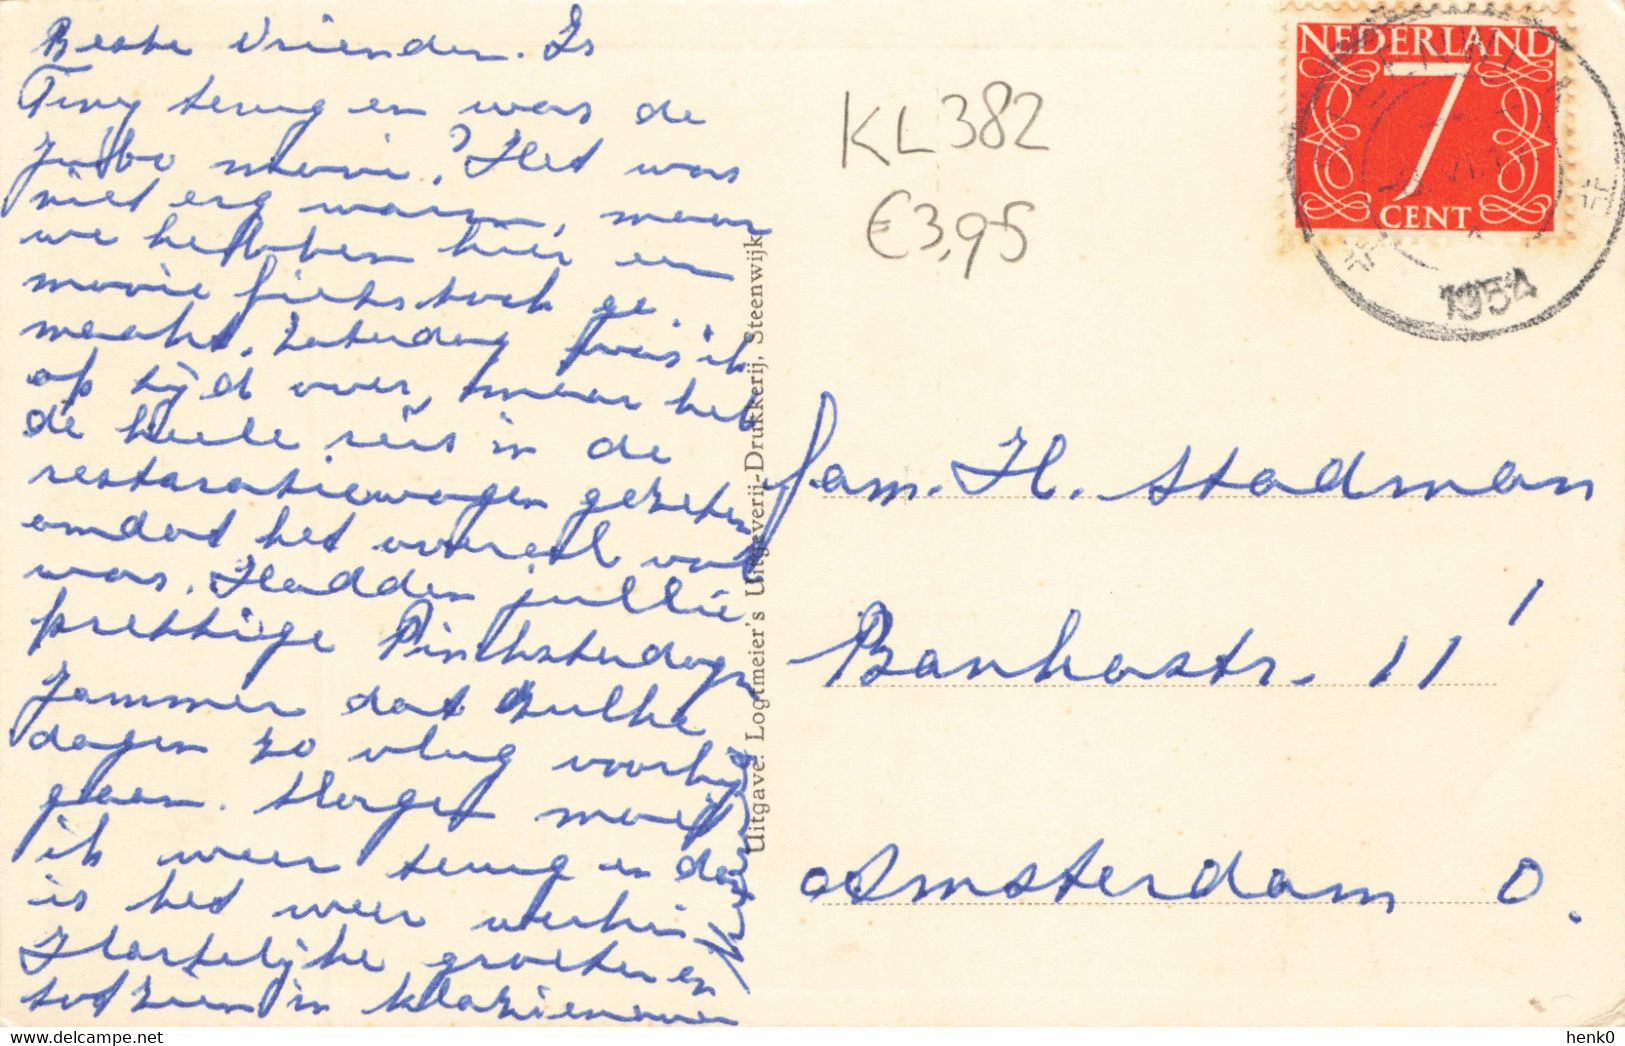 Beste Vrienden. Is
Tiny terug en was de
mooi? Het was
niet erg warm, maar
we hebben hier een
mooie fietstoch ge
maakt. Zaterdag was ik
op tijd over, maar heb
de heele reis in de
restauratiewagen gezeten
omdat het overal vol
was. Hadden jullie
prettige Pinksterdagen
Jammer dat zulke
dagen zo vlug voorbij
gaan. Morgen moet
ik weer terug en dan
is het weer werken
Hartelijke groeten en
tot ziens in
KL382
€3,95
NEDERLAND
7
CENT
1954
Fam. H. Stadman
Bankastr. 11'
Amsterdam O.
Uitgave: Logtmeier's Uitgeverij-Drukkerij, Steenwijk
henk0